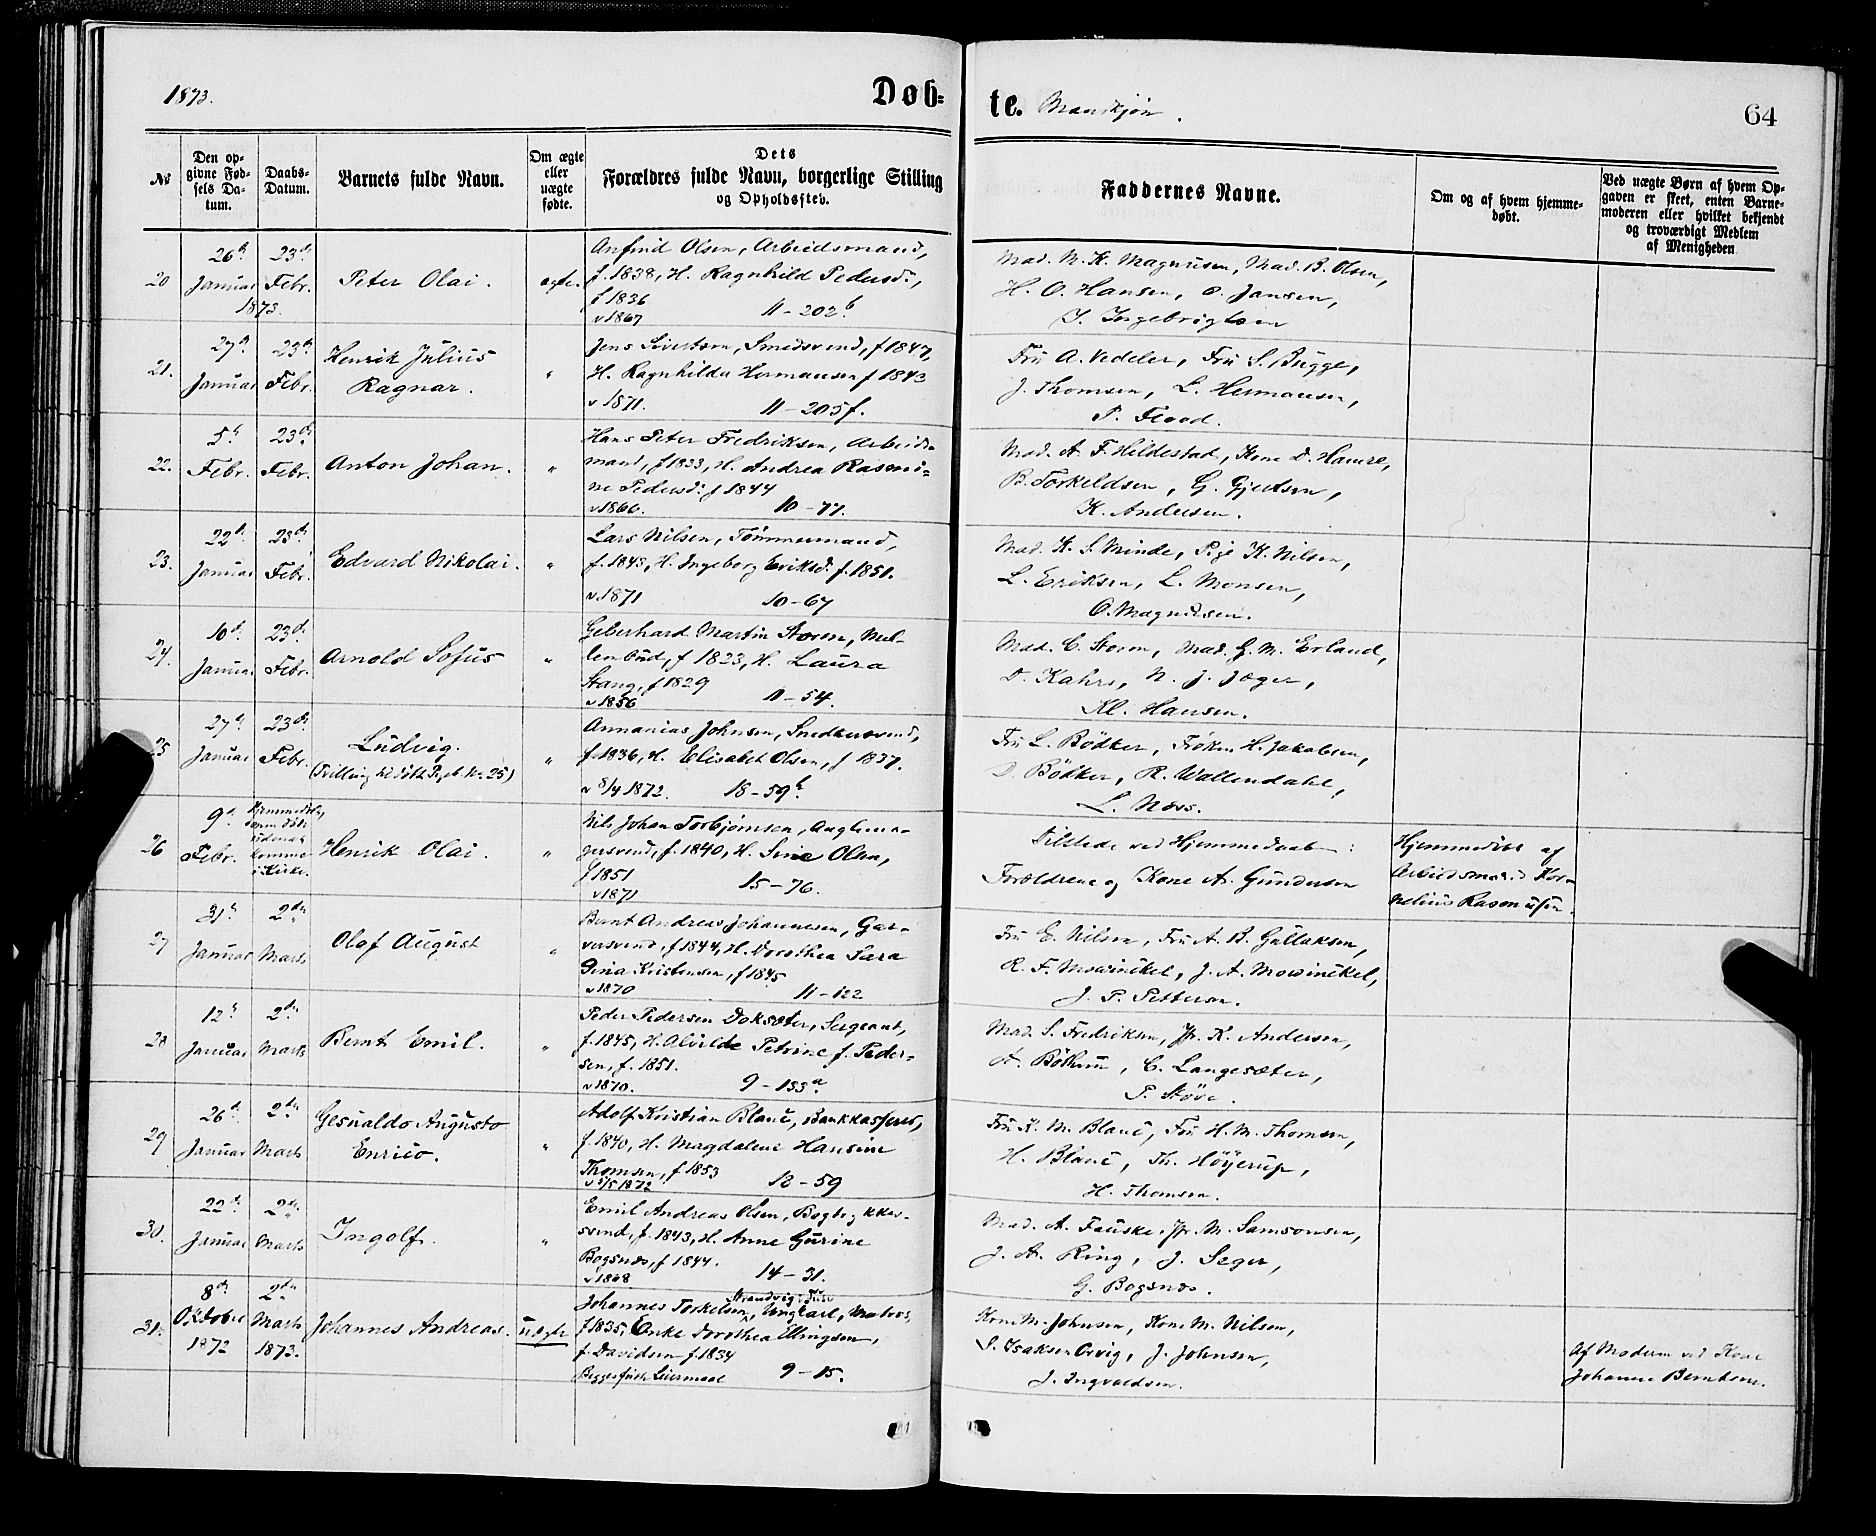 1873.
Døb-
te. Mandkjøn.
64
№
Den op-
givne Fød-
sels Da-
tum.
Daabs-
Datum.
Barnets fulde Navn.
Om ægte
eller
uægte
fødte.
Dets
Forældres fulde Navn, borgerlige Stilling
og Opholdssted.
Faddernes Navne.
Om og af hvem hjemme-
døbt.
Ved uægte Børn af hvem Op-
gaven er skeet, enten Barne-
moderen eller hvilket bekjendt
og troværdigt Medlem
af Menigheden
20
26d
Januar
1873.
23d
Febr.
Peter Olai.
ægte.
Anfind Olsen, Arbeidsmand,
f. 1838, H. Ragnhild Pedersd.,
f 1836
v 1867 11-202b
Mad. N. K. Magnusen, Mad. B. Olsen,
H. O. Hansen, O. Jansen,
I. Ingebrigtsen
21.
27d
Januar
23d
Febr.
Henrik Julius
Ragnar.
"
Jens Sivertsen, Smedsvend, f 1847,
H. Ragnhilda Hermansen f 1843
v 1871. 11-205f.
Fru A. Vedeler, Fru S. Bugge,
J. Thomsen, L. Hermansen,
P. Flood.
22.
5d
Febr.
23d
Febr.
Anton Johan.
"
Hans Peter Fredriksen, Arbeids-
mand, f 1833, H. Andrea Rasmi-
ne Pedersd. f 1844
v 1866. 10-77.
Mad. A. F. Hildestad, Kone D. Hamre,
B. Torkeldsen, G. Gjertsen,
K. Andersen.
23.
22d
Januar
23d
Febr.
Edvard Nikolai.
"
Lars Nilsen, Tømmermand,
f. 1843, H. Ingeborg Eriksd. f. 1851.
v. 1871 10-67
Mad. K. S. Minde, Pige K. Nilsen,
L. Eriksen, L. Monsen,
O. Magnusen.
24.
10d
Januar
23d
Febr.
Arnold Sofus
"
Geberhard Martin Storm, Mæl-
lenbud, f 1823, H. Laura
Stang, f 1829
v 1856 11-54.
Mad. C. Storm, Mad. G. M. Erland,
D. Kahrs, N. J. Jæger,
Kl. Hansen.
25
27d
Januar
23d
Febr.
Ludvig.
"
Annanias Johnsen, Snedkersvend,
f. 1836, H. Elisabet Olsen, f 1837.
v 8/4 1872. 18-59b
Fru L. Bödker, Frøken H. Jakobsen,
D. Bödker, R. Wallendahl,
L. Næss.
26
9d
Febr.
Henrik Olai.
"
Nils Johan Torbjørnsen,
f. 1840, H. Sine Olsen,
f 1851
v 1871 15-76.
Tilstede ved Hjemmedaab:
Forældrene og Kone A. Gundersen
Hjemmedøbt af
Arbeidsmand Kor-
nelius Rasmussen.
27
31d
Januar
2den
Marts
Olaf August
"
Bernt Andreas Johannesen, Gar-
versvend, f 1844, H. Dorothea Sara
Gina Kristensen, f 1845
v 1870 11-122
Fru E. Nilsen, Fru A. B. Gullaksen,
R. F. Mowinckel, J. A. Mowinckel,
J. P. Pettersen.
28
12d
Januar
2den
Marts
Bernt Emil.
"
Peder Pedersen Doksæter, Sergeant,
f. 1845, H. Alvilde Petrine f. Peder-
sen, f. 1851.
v 1870. 9-133a
Mad. S. Fredriksen, Jfr. K. Andersen,
A. Böthun, C. Langesæter,
P. Støve.
29
26d
Januar
2den
Marts
Gesualdo Augusto
Enrico.
"
Adolf Kristian Blanc, Bankkasserer,
f. 1840, H. Magdalene Hansine
Thomsen, f 1853
v 5/5 1872 12-59
Fru K. M. Blanc, Fru H. M. Thomsen,
H. Blanc, Th. Höyerup,
H. Thomsen.
30.
22d
Januar
2den
Marts
Ingolf.
"
Emil Andreas Olsen, Bogtrykker-
svend, f. 1843, H. Anne Gurine
Bogsnæs, f 1844.
v 1868 14-31.
Mad. A. Fauske, Jfr. M. Samsonsen,
J. A. Ring, J. Seger,
G. Bogsnæs.
31.
8de
Oktober
1872
2den
Marts
1873.
Johannes Andreas.
uægte
Johannes Torkelsen, Ungkarl, Matros,
f 1835, Enke Dorothea Ellingsen,
f. Davidsen f. 1834
Begges første Leiermaal 9-15.
Kone M. Johnsen, Kone M. Nilsen,
S. Isaksen Orvig, J. Johnsen,
J. Ingvaldsen.
Af Moderen ved Kone
Johanne Berntsen.